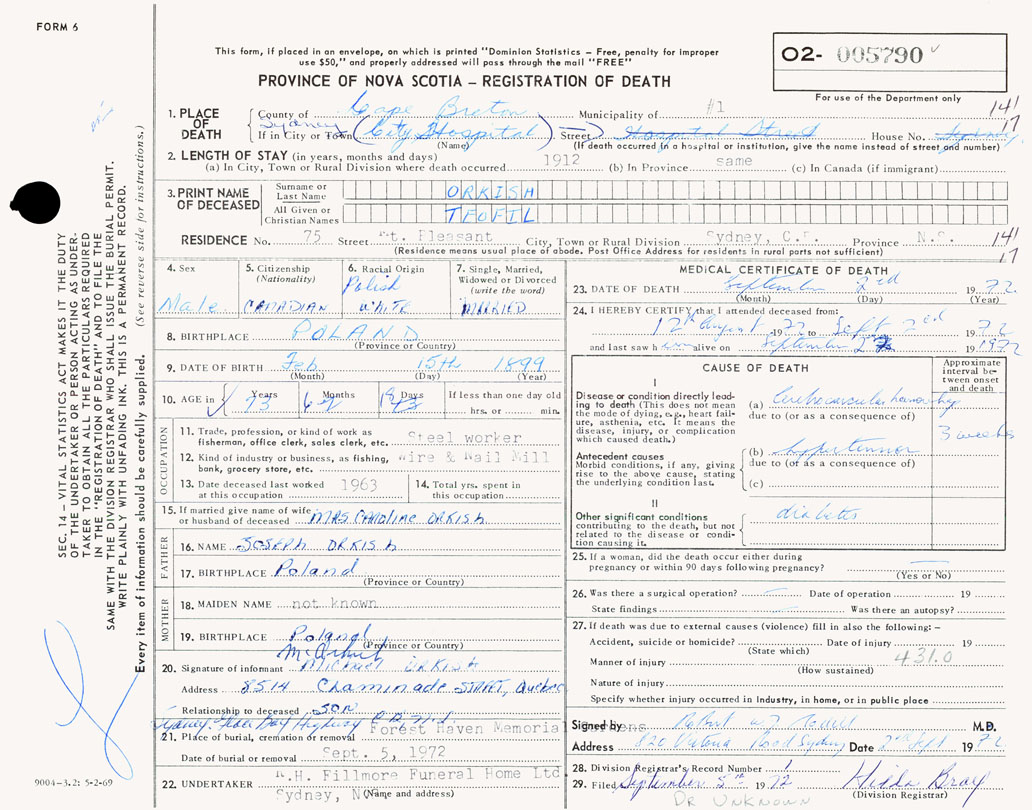 FORM 6
This form, if placed in an envelope, on which is printed "Dominion Statistics – Free, penalty for improper
use $50," and properly addressed will pass through the mail "FREE"
PROVINCE OF NOVA SCOTIA – REGISTRATION OF DEATH
02- 005790
For use of the Department only
1. PLACE OF DEATH County of Cape Breton Municipality of #1 141
Sydney 17
If in City or Town (City Hospital) Street Hospital Street House No. Sydney
(Name) (If death occurred in a hospital or institution, give the name instead of street and number)
2. LENGTH OF STAY (in years, months and days)
(a) In City, Town or Rural Division where death occurred 1912 (b) In Province same (c) In Canada (if immigrant)
3. PRINT NAME OF DECEASED Surname or Last Name ORKISH
All Given or Christian Names TEOFIL
RESIDENCE No. 75 Street Mt. Pleasant City, Town or Rural Division Sydney, C.B. Province N.S. 141
17
(Residence means usual place of abode. Post Office Address for residents in rural parts not sufficient)
4. Sex Male
5. Citizenship (Nationality) CANADIAN
6. Racial Origin Polish WHITE
7. Single, Married, Widowed or Divorced (write the word) MARRIED
8. BIRTHPLACE POLAND
(Province or Country)
9. DATE OF BIRTH Feb 15th 1899
(Month) (Day) (Year)
10. AGE in Years 73 Months 6 Days 18 If less than one day old
hrs. or min.
OCCUPATION
11. Trade, profession, or kind of work as
fisherman, office clerk, sales clerk, etc. Steel worker
12. Kind of industry or business, as fishing,
bank, grocery store, etc. Wire & Nail Mill
13. Date deceased last worked
at this occupation 1963
14. Total yrs. spent in
this occupation
15. If married give name of wife
or husband of deceased MRS CAROLINE ORKISH
FATHER
16. NAME JOSEPH ORKISH
17. BIRTHPLACE Poland
(Province or Country)
MOTHER
18. MAIDEN NAME not known
19. BIRTHPLACE Poland
(Province or Country)
20. Signature of informant Michael ORKISH
Address 8514 Chaminade STREET, Quebec
Relationship to deceased SON
Sydney Glace Bay Highway
21. Place of burial, cremation or removal Forest Haven Memorial Gardens
Date of burial or removal Sept. 5, 1972
22. UNDERTAKER W.H. Fillmore Funeral Home Ltd
Sydney, NS
(Name and address)
MEDICAL CERTIFICATE OF DEATH
23. DATE OF DEATH September 2nd 1972
(Month) (Day) (Year)
24. I HEREBY CERTIFY that I attended deceased from:
12th August 1972 to Sept 2nd 1972
and last saw him alive on September 2 1972
CAUSE OF DEATH
Approximate interval between onset and death
I
Disease or condition directly leading to death (This does not mean the mode of dying, e.g., heart failure, asthenia, etc. It means the disease, injury, or complication which caused death.)
(a) Cerebrovascular hemorrhage
due to (or as a consequence of)
3 weeks
Antecedent causes
Morbid conditions, if any, giving rise to the above cause, stating the underlying condition last.
(b) hypertension
due to (or as a consequence of)
(c)
II
Other significant conditions
contributing to the death, but not related to the disease or condition causing it.
diabetes
25. If a woman, did the death occur either during
pregnancy or within 90 days following pregnancy?
(Yes or No)
26. Was there a surgical operation? Date of operation 19
State findings Was there an autopsy?
27. If death was due to external causes (violence) fill in also the following: –
Accident, suicide or homicide? Date of injury 19
(State which)
431.0
Manner of injury
(How sustained)
Nature of injury
Specify whether injury occurred in Industry, in home, or in public place
Signed by Robert M.D.
Address 820 Victoria Road Sydney Date 2nd Sept 1972
28. Division Registrar's Record Number
29. Filed September 5th 1972 Hilda Bray
(Division Registrar)
DR UNKNOWN
SEC. 14 – VITAL STATISTICS ACT MAKES IT THE DUTY
OF THE UNDERTAKER OR PERSON ACTING AS UNDER-
TAKER TO OBTAIN ALL THE PARTICULARS REQUIRED
IN THE "REGISTRATION OF DEATH" AND TO FILE THE
SAME WITH THE DIVISION REGISTRAR WHO SHALL ISSUE THE BURIAL PERMIT.
WRITE PLAINLY WITH UNFADING INK. THIS IS A PERMANENT RECORD.
Every item of information should be carefully supplied. (See reverse side for instructions.)
9004-3.2: 5-2-69